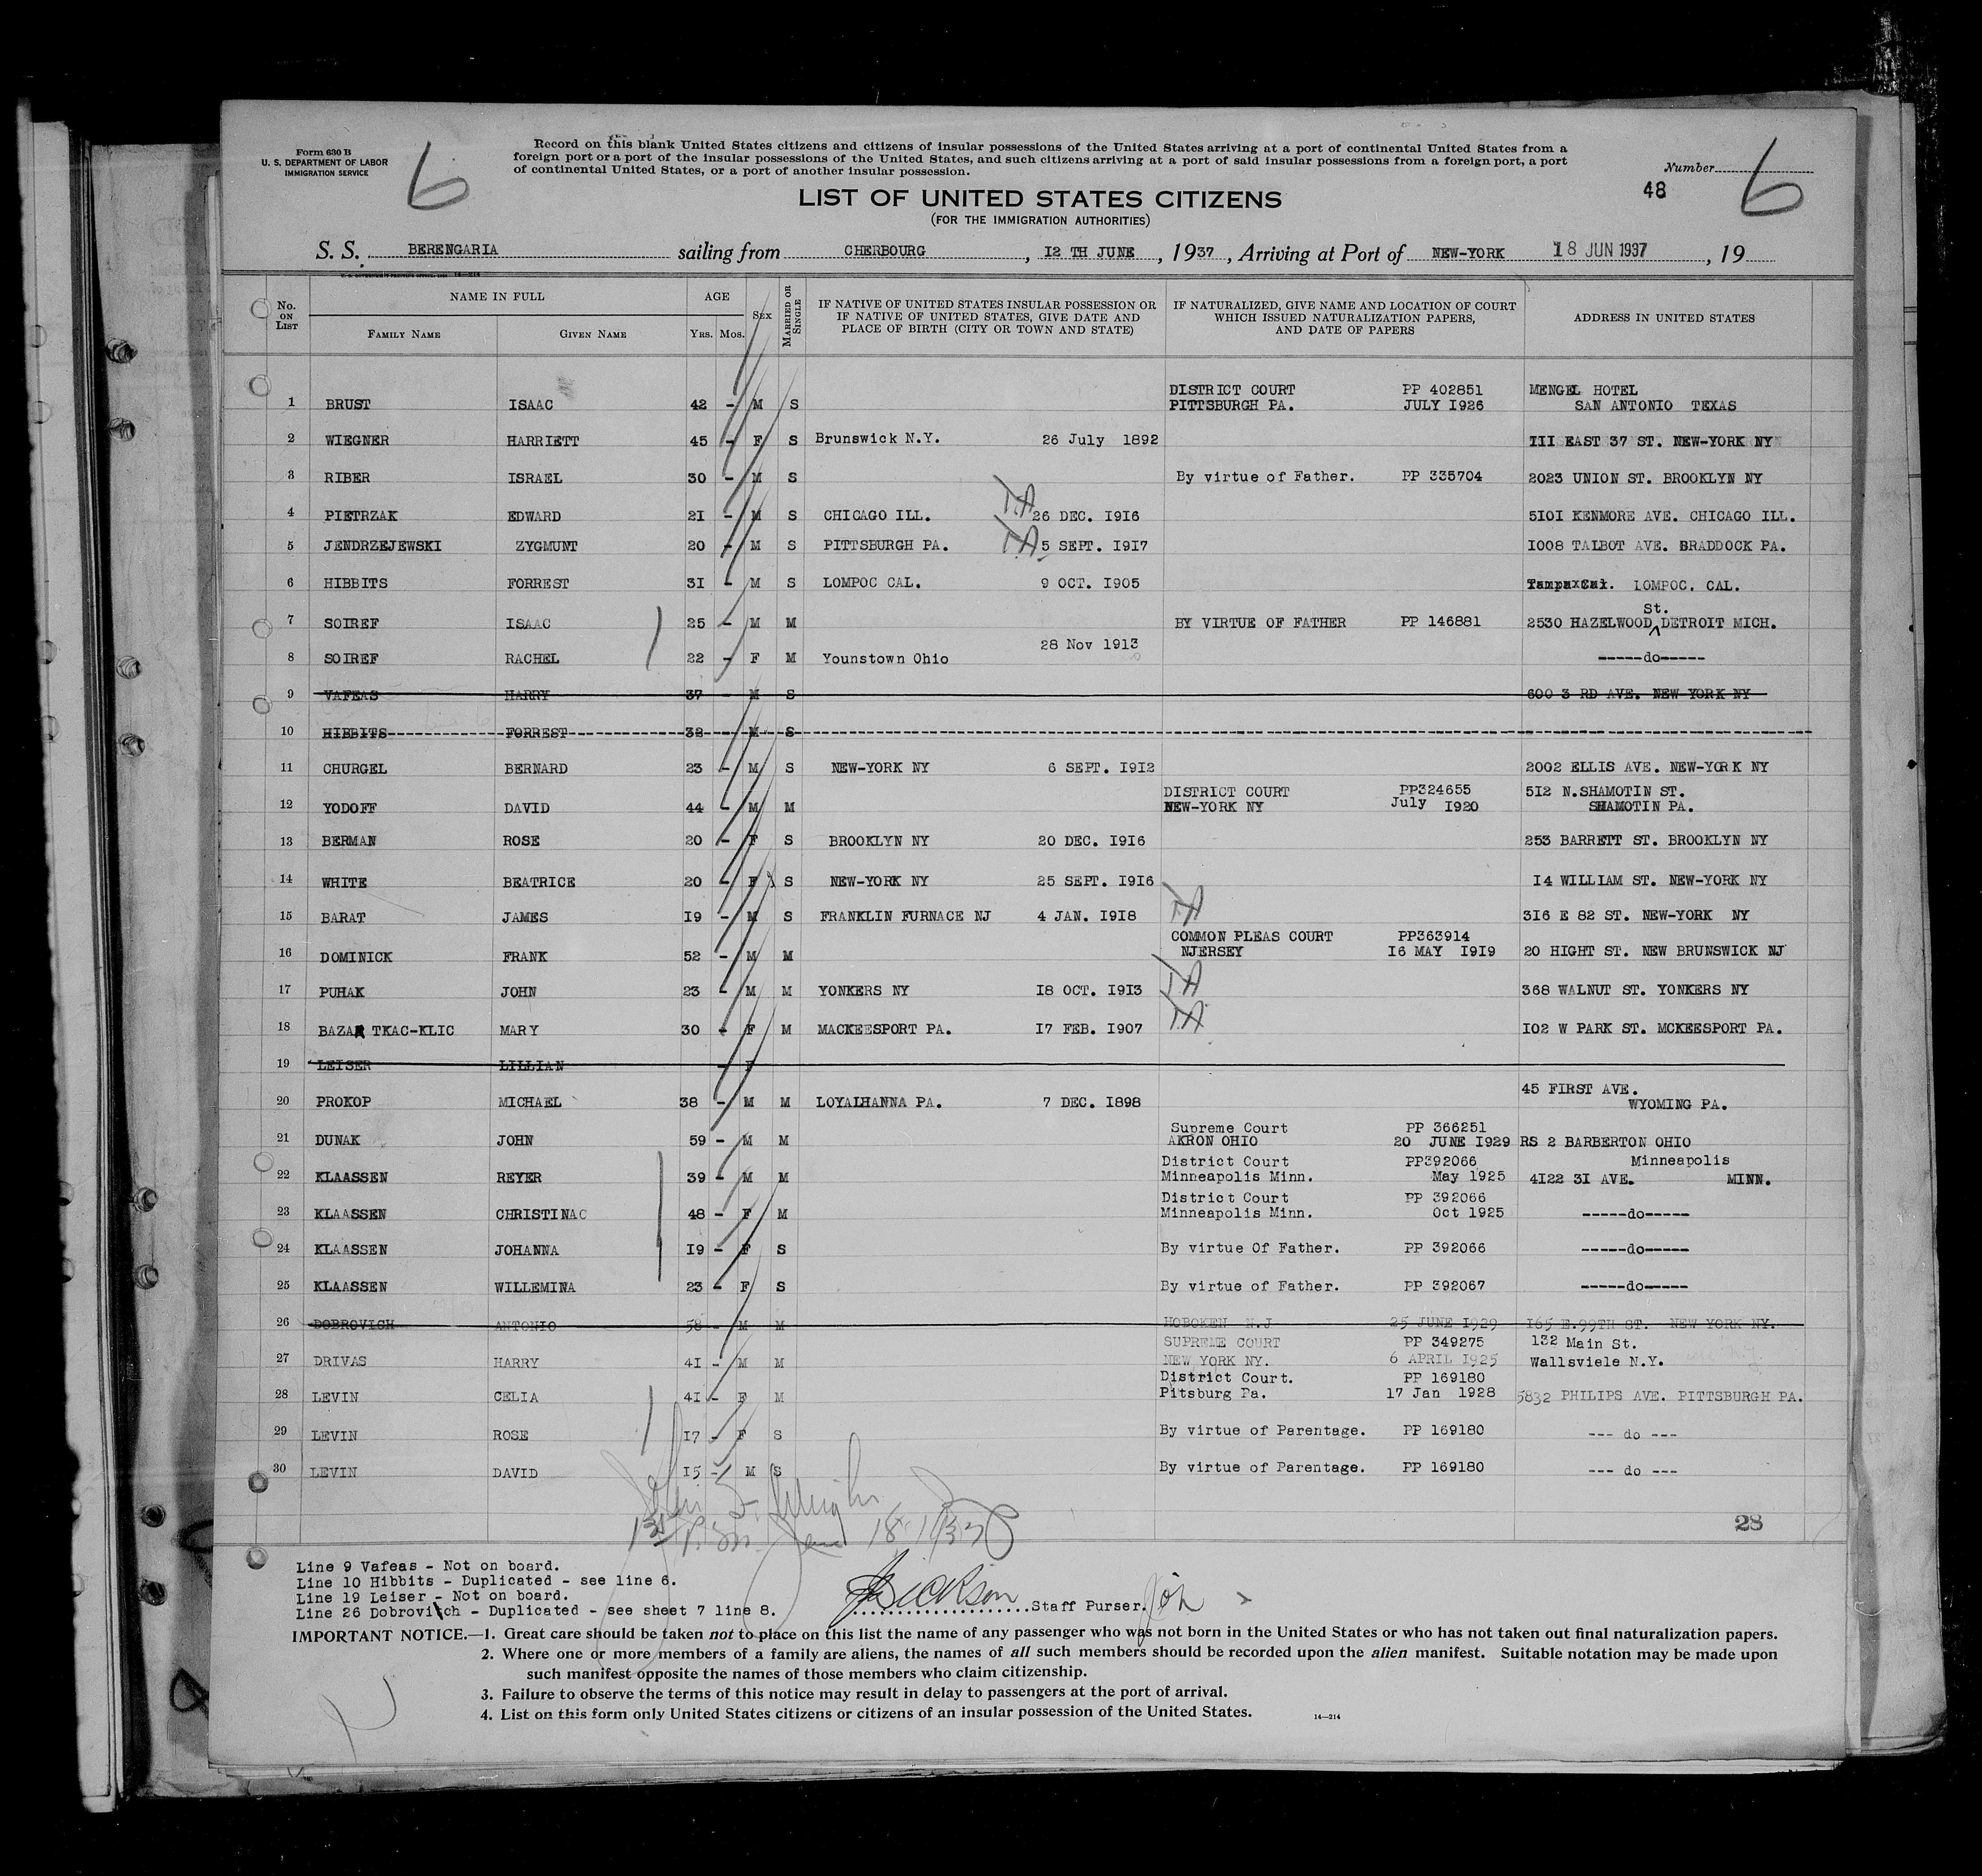 Form 630 B
U. S. DEPARTMENT OF LABOR
IMMIGRATION SERVICE
6
Record on this blank United States citizens and citizens of insular possessions of the United States arriving at a port of continental United States from a
foreign port or a port of the insular possessions of the United States, and such citizens arriving at a port of said insular possessions from a foreign port, a port
of continental United States, or a port of another insular possession.
Number
48
6
LIST OF UNITED STATES CITIZENS
(FOR THE IMMIGRATION AUTHORITIES)
S. S. BERENGARIA sailing from CHERBOURG, I2 TH JUNE, 1937, Arriving at Port of NEW-YORK 18 JUN 1937, 19
No. ON LIST NAME IN FULL AGE SEX MARRIED OR SINGLE IF NATIVE OF UNITED STATES INSULAR POSSESSION OR IF NATIVE OF UNITED STATES, GIVE DATE AND PLACE OF BIRTH (CITY OR TOWN AND STATE) IF NATURALIZED, GIVE NAME AND LOCATION OF COURT WHICH ISSUED NATURALIZATION PAPERS, AND DATE OF PAPERS ADDRESS IN UNITED STATES
FAMILY NAME GIVEN NAME YRS. MOS.
DISTRICT COURT PP 402851 MENGEL HOTEL
1 BRUST ISAAC 42 - M S PITTSBURGH PA. JULY I926 SAN ANTONIO TEXAS
2 WIEGNER HARRIETT 45 - F S Brunswick N.Y. 26 July 1892 III EAST 37 ST. NEW-YORK NY
3 RIBER ISRAEL 30 - M S By virtue of Father. PP 335704 2023 UNION ST. BROOKLYN NY
4 PIETRZAK EDWARD 2I - M S CHICAGO ILL. T.A 26 DEC. I9I6 5I0I KENMORE AVE. CHICAGO ILL.
5 JENDRZEJEWSKI ZYGMUNT 20 - M S PITTSBURGH PA. T.A 5 SEPT. I9I7 I008 TALBOT AVE. BRADDOCK PA.
6 HIBBITS FORREST 3I - M S LOMPOC CAL. 9 OCT. I905 LOMPOC. CAL.
St.
7 SOIREF ISAAC 25 - M M BY VIRTUE OF FATHER PP 146881 2530 HAZELWOOD DETROIT MICH.
28 Nov 1913
8 SOIREF RACHEL 22 - F M Younstown Ohio -----do-----
9 VAFEAS HARRY 37 - M S 600 3 RD AVE. NEW YORK NY
10 HIBBITS FORREST 32 - M S
11 CHURGEL BERNARD 23 - M S NEW-YORK NY 6 SEPT. I9I2 2002 ELLIS AVE. NEW-YORK NY
DISTRICT COURT PP324655 5I2 N.SHAMOTIN ST.
12 YODOFF DAVID 44 - M M NEW-YORK NY July I920 SHAMOTIN PA.
13 BERMAN ROSE 20 - F S BROOKLYN NY 20 DEC. I9I6 253 BARRETT ST. BROOKLYN NY
14 WHITE BEATRICE 20 - F S NEW-YORK NY 25 SEPT. I9I6 I4 WILLIAM ST. NEW-YORK NY
15 BARAT JAMES I9 - M S FRANKLIN FURNACE NJ 4 JAN. I9I8 T.A 3I6 E 82 ST. NEW-YORK NY
COMMON PLEAS COURT PP363914
16 DOMINICK FRANK 52 - M M NJERSEY I6 MAY I9I9 20 HIGHT ST. NEW BRUNSWICK NJ
17 PUHAK JOHN 23 - M M YONKERS NY I8 OCT. I9I3 T.A 368 WALNUT ST. YONKERS NY
18 BAZAR TKAC-KLIC MARY 30 - F M MACKEESPORT PA. I7 FEB. I907 T.A. I02 W PARK ST. MCKEESPORT PA.
19 LEISER LILLIAN - F
45 FIRST AVE.
20 PROKOP MICHAEL 38 - M M LOYALHANNA PA. 7 DEC. I898 WYOMING PA.
Supreme Court PP 366251
21 DUNAK JOHN 59 - M M AKRON OHIO 20 JUNE I929 RS 2 BARBERTON OHIO
District Court PP392066 Minneapolis
22 KLAASSEN REYER 39 - M M Minneapolis Minn. May 1925 4I22 3I AVE. MINN.
District Court PP 392066
23 KLAASSEN CHRISTINAC 48 - F M Minneapolis Minn. Oct 1925 -----do-----
24 KLAASSEN JOHANNA I9 - F S By virtue Of Father. PP 392066 -----do-----
25 KLAASSEN WILLEMINA 23 - F S By virtue of Father. PP 392067 -----do-----
26 DOBROVICH ANTONIO 58 - M M HOBOKEN N.J 25 JUNE I929 I65 E.99TH ST. NEW YORK NY.
SUPREME COURT PP 349275 132 Main St.
27 DRIVAS HARRY 4I - M M NEW YORK NY. 6 APRIL I925 Wallsviele N.Y.
District Court. PP 169180
28 LEVIN CELIA 4I - F M Pitsburg Pa. 17 Jan 1928 5832 PHILIPS AVE. PITTSBURGH PA.
29 LEVIN ROSE I7 - F S By virtue of Parentage. PP 169180 --- do ---
30 LEVIN DAVID I5 - M S By virtue of Parentage. PP 169180 --- do ---
28
Line 9 Vafeas - Not on board.
Line 10 Hibbits - Duplicated - see line 6.
Line 19 Leiser - Not on board.
Line 26 Dobrovitch - Duplicated - see sheet 7 line 8.
Dickson Staff Purser.
IMPORTANT NOTICE.—1. Great care should be taken not to place on this list the name of any passenger who was not born in the United States or who has not taken out final naturalization papers.
2. Where one or more members of a family are aliens, the names of all such members should be recorded upon the alien manifest. Suitable notation may be made upon
such manifest opposite the names of those members who claim citizenship.
3. Failure to observe the terms of this notice may result in delay to passengers at the port of arrival.
4. List on this form only United States citizens or citizens of an insular possession of the United States.
14—214